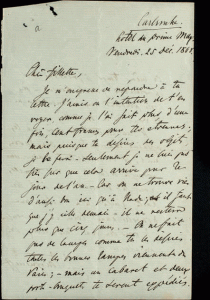 Carlsruhe.
Hôtel du Prince Max
Vendredi, 25 Déc. 1868.
Chère fillette,
Je m'empresse de répondre à ta
lettre. J'avais l'intention de t'en-
voyer comme je l'ai fait plus d'une
fois, cent francs pour tes étrennes;
mais puisque tu désires des objets,
je le ferai. Seulement je ne suis pas
sûr que cela arrive pour le
jour de l'an. Car on ne trouve rien
d'
que j'
plus que cinq jours. On ne fait
pas de lampe comme tu les désires,
toutes les bonnes lampes viennent de
Paris; mais un cabaret et deux
porte-bouquets te seront expédiés